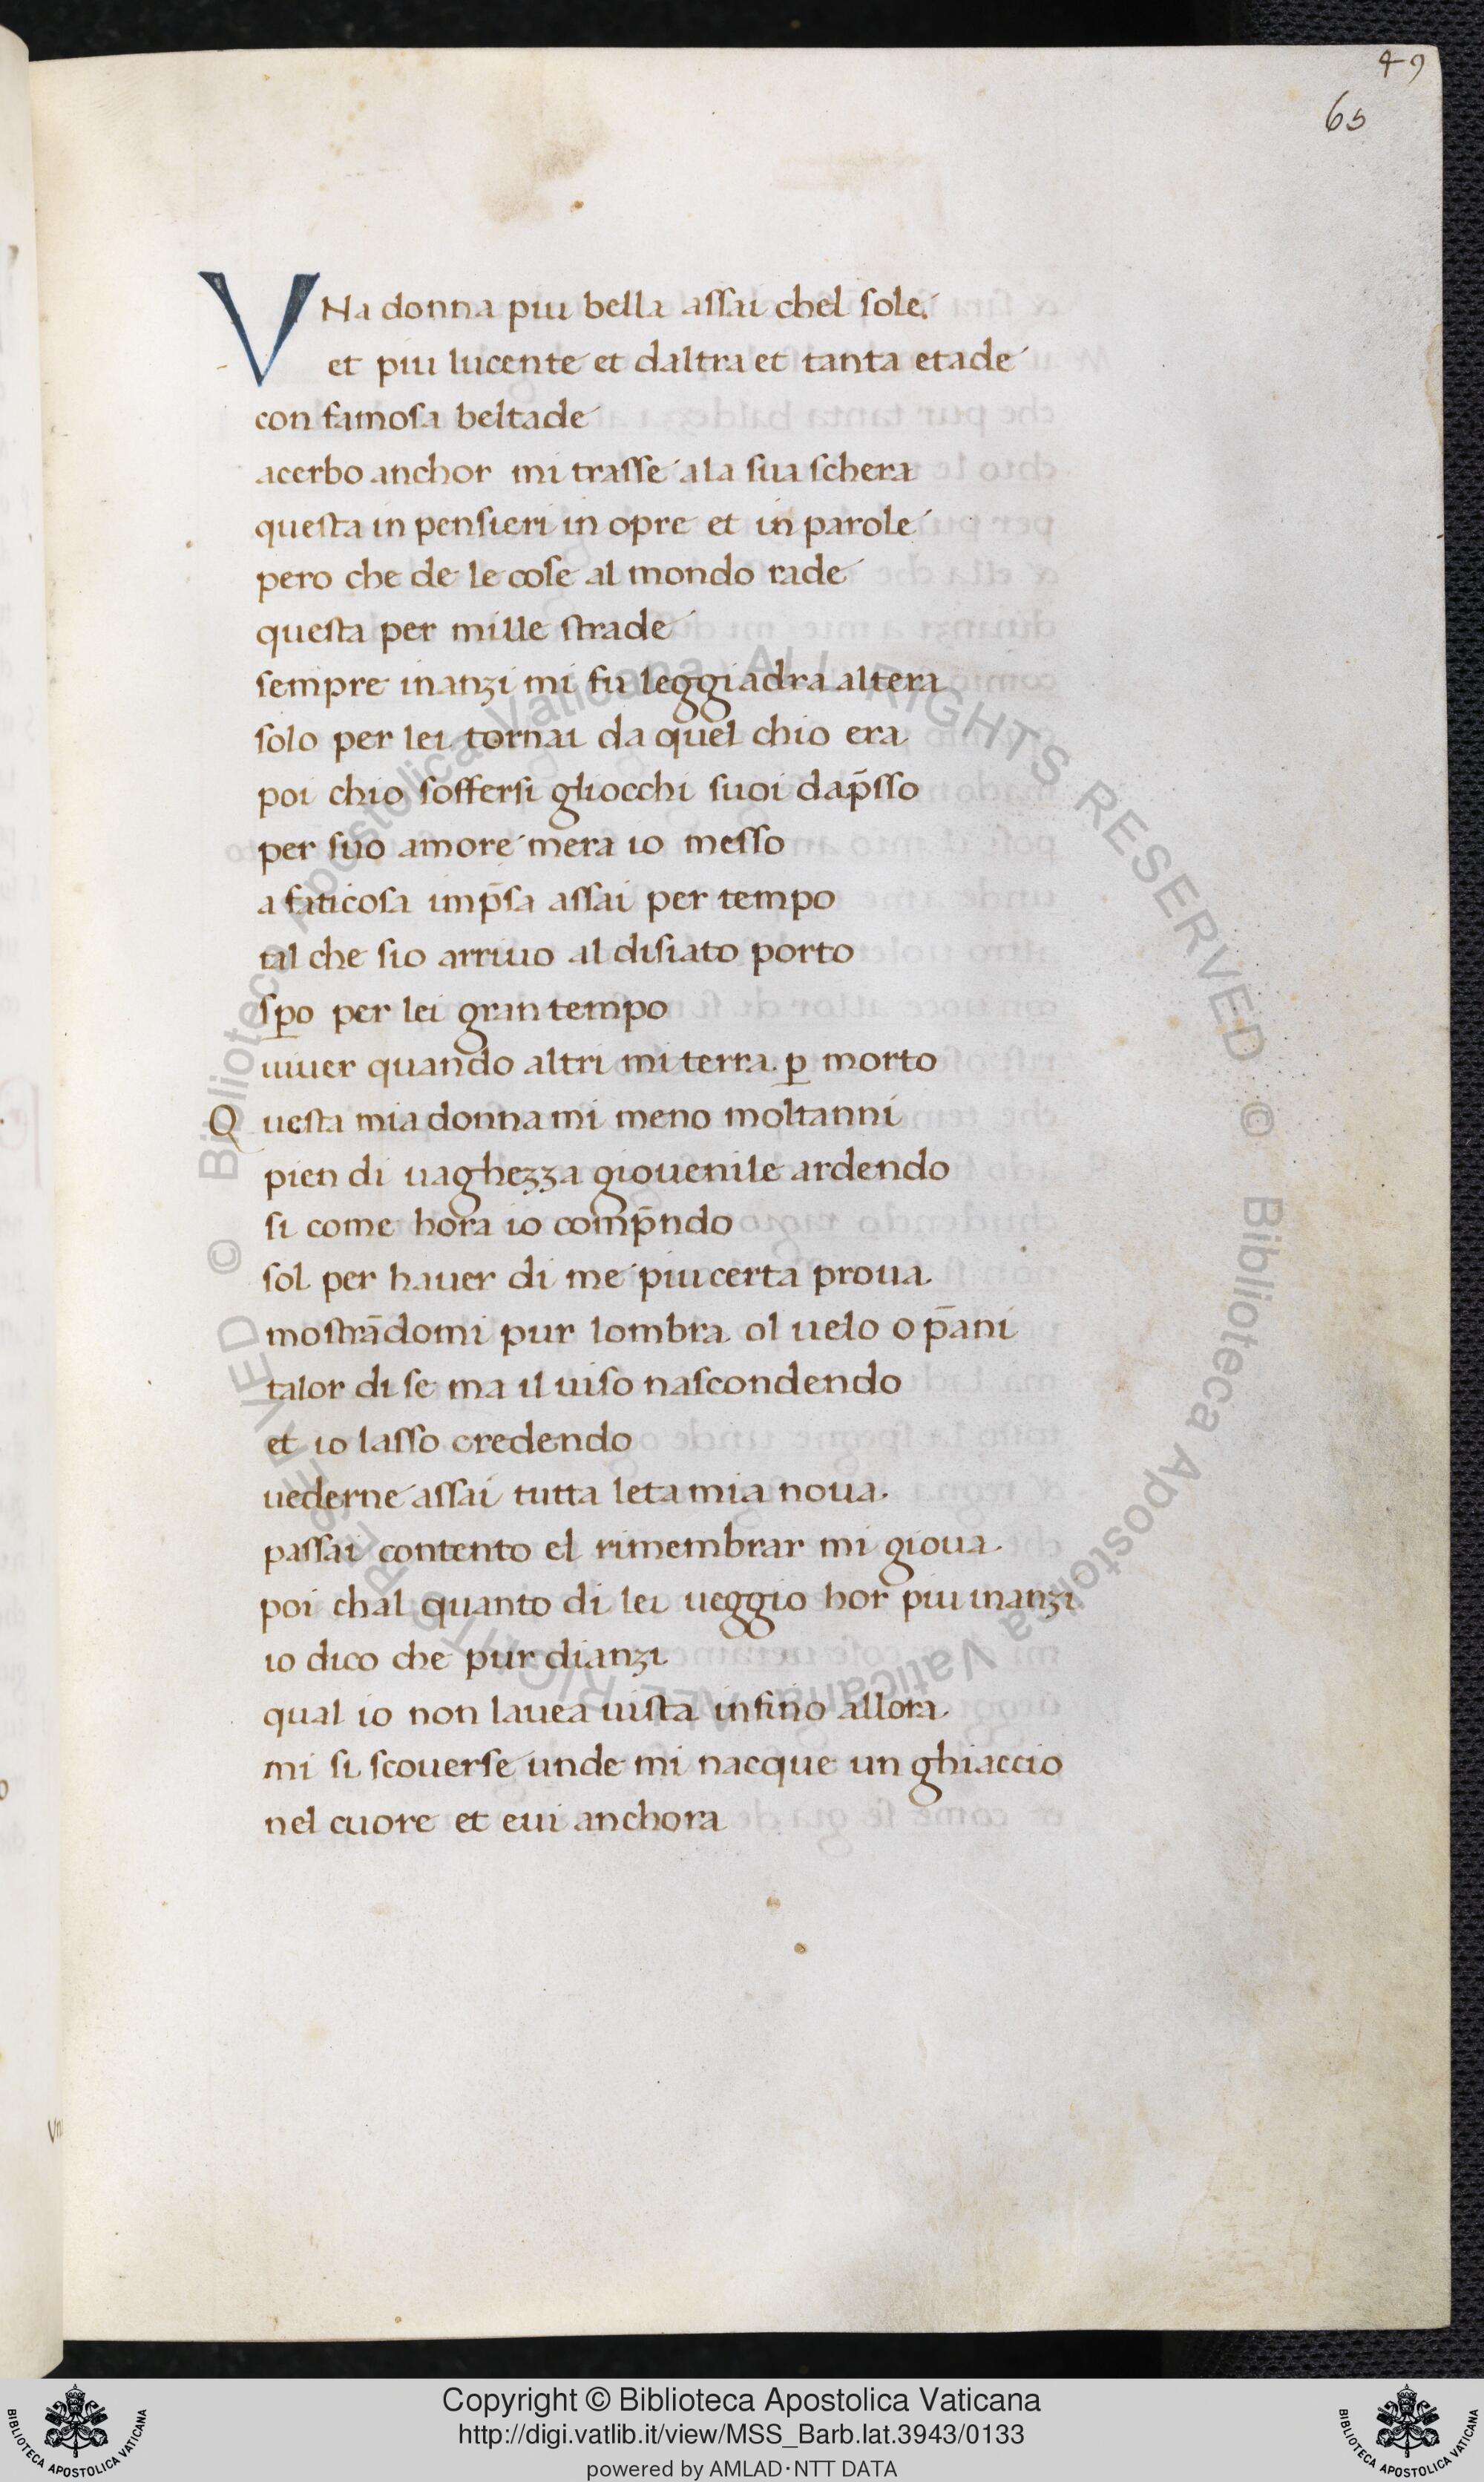 49
65
VNa donna piu bella assai chel sole
et piu lucente et daltra et tanta etade
con famosa beltade
acerbo anchor mi trasse ala sua schera
questa in pensieri in opre et in parole
pero che de le cose al mondo rade
questa per mille strade
sempre inanzi mi fu leggiadra altera
solo per lei tornai da quel chio era
poi chio soffersi gliocchi suoi dap̄sso
per suo amore mera io messo
a faticosa imp̄sa assai per tempo
tal che sio arriuo al disiato porto
sꝑo per lei gran tempo
uiuer quando altri mi terra ꝑ morto
Questa mia donna mi meno moltanni
pien di uaghezza giouenile ardendo
si come hora io comp̄ndo
sol per hauer di me piu certa proua
mostrādomi pur lombra ol uelo o pāni
talor di se ma il uiso nascondendo
et io lasso credendo
uederne assai tutta leta mia noua.
passai contento el rimembrar mi gioua.
poi chal quanto di lei ueggio hor piu inanzi
io dico che pur dianzi
qual io non lauea uista infino allora
mi si scouerse unde mi nacque un ghiaccio
nel cuore et eui anchora
© Biblioteca Apostolica Vaticana ALL RIGHTS RESERVED © Biblioteca Apostolica Vaticana ALL RIGHTS RESERVED
Copyright © Biblioteca Apostolica Vaticana
http://digi.vatlib.it/view/MSS_Barb.lat.3943/0133
powered by AMLAD·NTT DATA
BIBLIOTECA APOSTOLICA VATICANA
BIBLIOTECA APOSTOLICA VATICANA